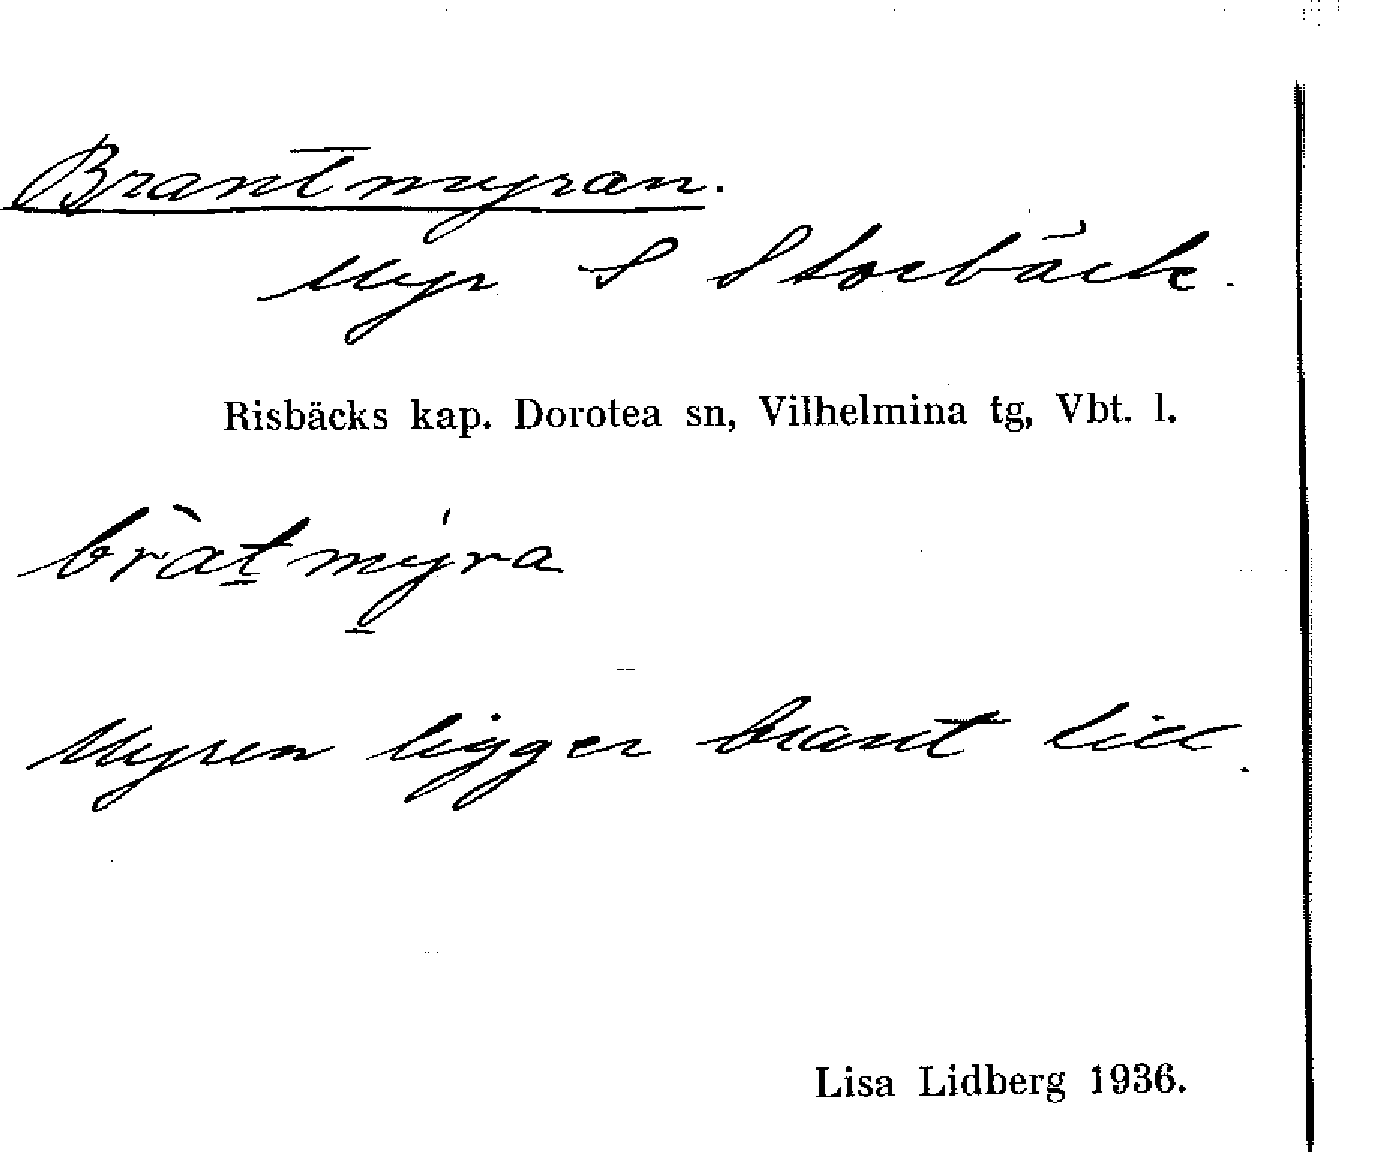 Brantmyran.
Myr S Storbäck.
Risbäcks kap. Dorotea sn, Vilhelmina tg, Vbt. l.
bràt̲mý̲ra
Myren ligger brant till.
Lisa Lidberg 1936.